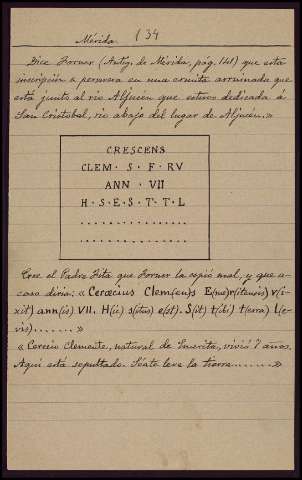 Mérida (34
Dice Forner (Antig. de Mérida, pág. 141) que esta
inscripción se conserva en una ermita arruinada que
está junto al río Aljucén que estuvo dedicada á
San Cristobal, río abajo del lugar de Aljucén.»
CRESCENS
CLEM · S · F · RV
ANN VII
H · S · E · S · T · T · L
. . . . . . . . . . . . . . .
. . . . . . . . . . . . . . .
Cree el Padre Fita que Forner la copió mal, y que a-
caso diría: « Cerœcius Clem(en)s E(me)r(itensis) v(i-
xit) ann(is) VII. H(ic) s(itus) e(st). S(it) t(ibi) t(erra) l(e-
vis)........»
« Cerecio Clemente, natural de Emerita, vivió 7 años.
Aquí está sepultado. Séate leve la tierra........»